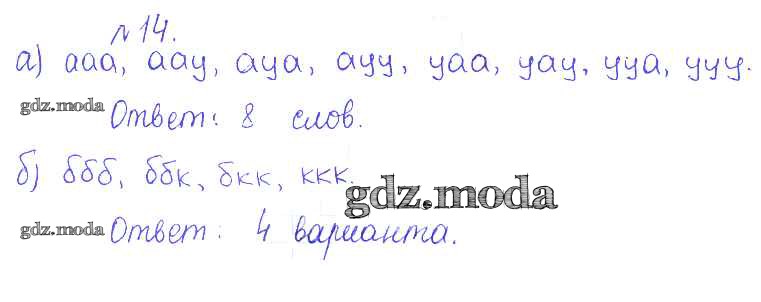 №14.
а) ааа, аау, ауа, ауу, уаа, уау, ууа, ууу.
gdz.moda Ответ: 8 слов.
б) ббб, ббк, бкк, ккк.
gdz.moda
gdz.moda Ответ: 4 варианта.